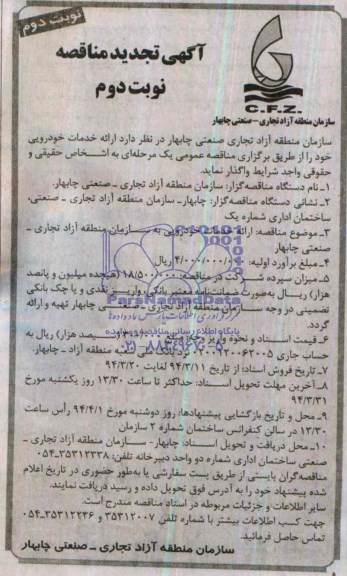 نوبت دوم
آگهی تجدید مناقصه
نوبت دوم
C.F.Z.
سازمان منطقه آزاد تجاری - صنعتی چابهار
سازمان منطقه آزاد تجاری صنعتی چابهار در نظر دارد ارائه خدمات خودرویی
خود را از طریق برگزاری مناقصه عمومی یک مرحله‌ای به اشخاص حقیقی و
حقوقی واجد شرایط واگذار نماید.
۱ـ نام دستگاه مناقصه‌گزار: سازمان منطقه آزاد تجاری ـ صنعتی چابهار.
۲ـ نشانی دستگاه مناقصه‌گزار: چابهار ـ سازمان منطقه آزاد تجاری ـ صنعتی،
ساختمان اداری شماره یک
۳ـ موضوع مناقصه: ارائه خدمات خودرویی به سازمان منطقه آزاد تجاری ـ
صنعتی چابهار
۴ـ مبلغ برآورد اولیه: ریال
۵ـ میزان سپرده شرکت در مناقصه: (هیجده میلیون و پانصد
هزار) ریال به‌صورت ضمانت‌نامه معتبر بانکی، واریز نقدی و یا چک بانکی
تضمینی در وجه سازمان منطقه آزاد تجاری ـ صنعتی چابهار تهیه و ارائه
گردد.
۶ـ قیمت اسناد و نحوه واریز هزار) ریال به
حساب جاری نزد بانک ملی شعبه منطقه آزاد ـ چابهار.
۷ـ تاریخ فروش اسناد: از تاریخ ۹۴/۳/۱۱ لغایت ۹۴/۳/۲۰
۸ـ آخرین مهلت تحویل اسناد: حداکثر تا ساعت ۱۳/۳۰ روز یکشنبه مورخ
۹۴/۳/۳۱
۹ـ محل و تاریخ بازگشایی پیشنهادها: روز دوشنبه مورخ ۹۴/۴/۱ رأس ساعت
۱۳/۳۰ در سالن کنفرانس ساختمان شماره ۲ سازمان
۱۰ـ محل دریافت و تحویل اسناد: چابهار ـ سازمان منطقه آزاد تجاری ـ
صنعتی ساختمان اداری شماره دو واحد دبیرخانه تلفن: ۳۵۳۱۲۳۳۸ـ۰۵۴
مناقصه‌گران بایستی از طریق پست سفارشی یا به‌طور حضوری در تاریخ اعلام
شده پیشنهاد خود را به آدرس فوق تحویل داده و رسید دریافت نمایند.
سایر اطلاعات و جزئیات مربوطه در اسناد مناقصه مندرج است.
جهت کسب اطلاعات بیشتر با شماره تلفن ۳۵۳۱۲۰۰۷ و ۳۵۳۱۲۲۳۶ـ۰۵۴
تماس حاصل فرمائید.
سازمان منطقه آزاد تجاری ـ صنعتی چابهار